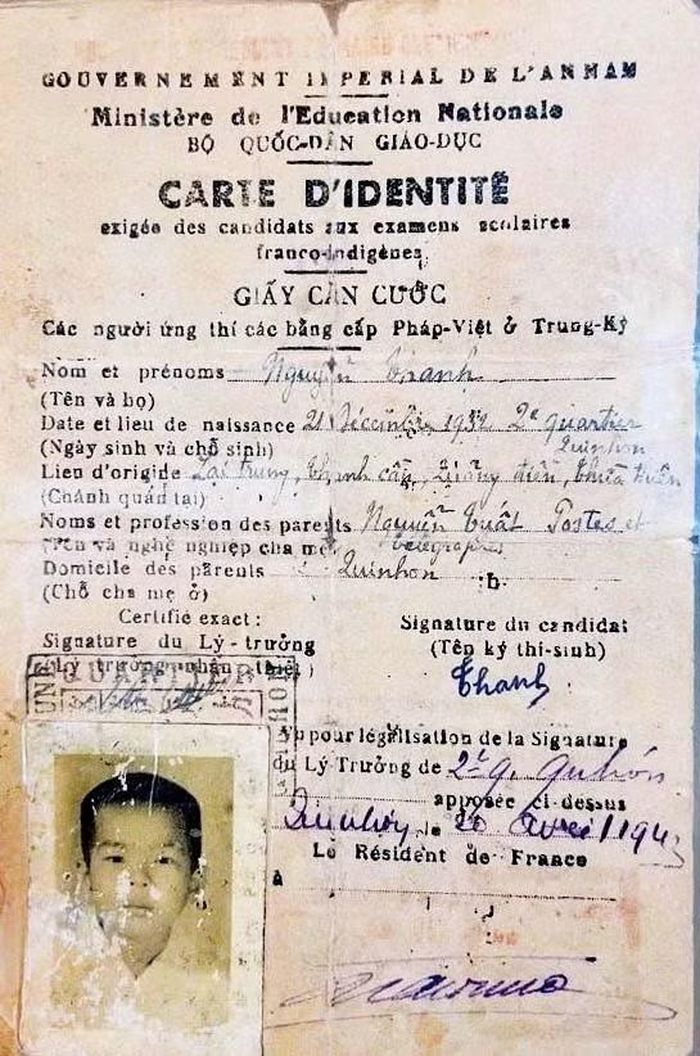 GOUVERNEMENT IMPERIAL DE L'ANNAM
Ministère de l'Education Nationale
BỘ QUỐC-DÂN GIÁO-DỤC
CARTE D'IDENTITÉ
exigée des candidats aux examens scolaires
franco-indigènes
GIẤY CĂN CƯỚC
Các người ứng thí các bằng cấp Pháp-Việt ở Trung-Kỳ
Nom et prénoms Nguyễn Thanh
(Tên và họ)
Date et lieu de naissance 21 Décembre 1932 2e quartier
(Ngày sinh và chỗ sinh) Quinhon
Lieu d'origine Lai trung, Quảng điền, Thừa thiên
(Chánh quán tại)
Noms et profession des parents Nguyễn Tuất Postes et
(Tên và nghề nghiệp cha mẹ) télégraphes
Domicile des parents Quinhon
(Chỗ cha mẹ ở)
Certifié exact :
Signature du Lý-trưởng
(Lý trưởng nhận thiệt)
QUARTIER
Signature du candidat
(Tên ký thí-sinh)
Thanh
Vu pour légalisation de la Signature
du Lý Trưởng de 2e q. Quinhon
apposée ci-dessus
Quinhon, le 20 Avril 1943
Le Résident de France
à